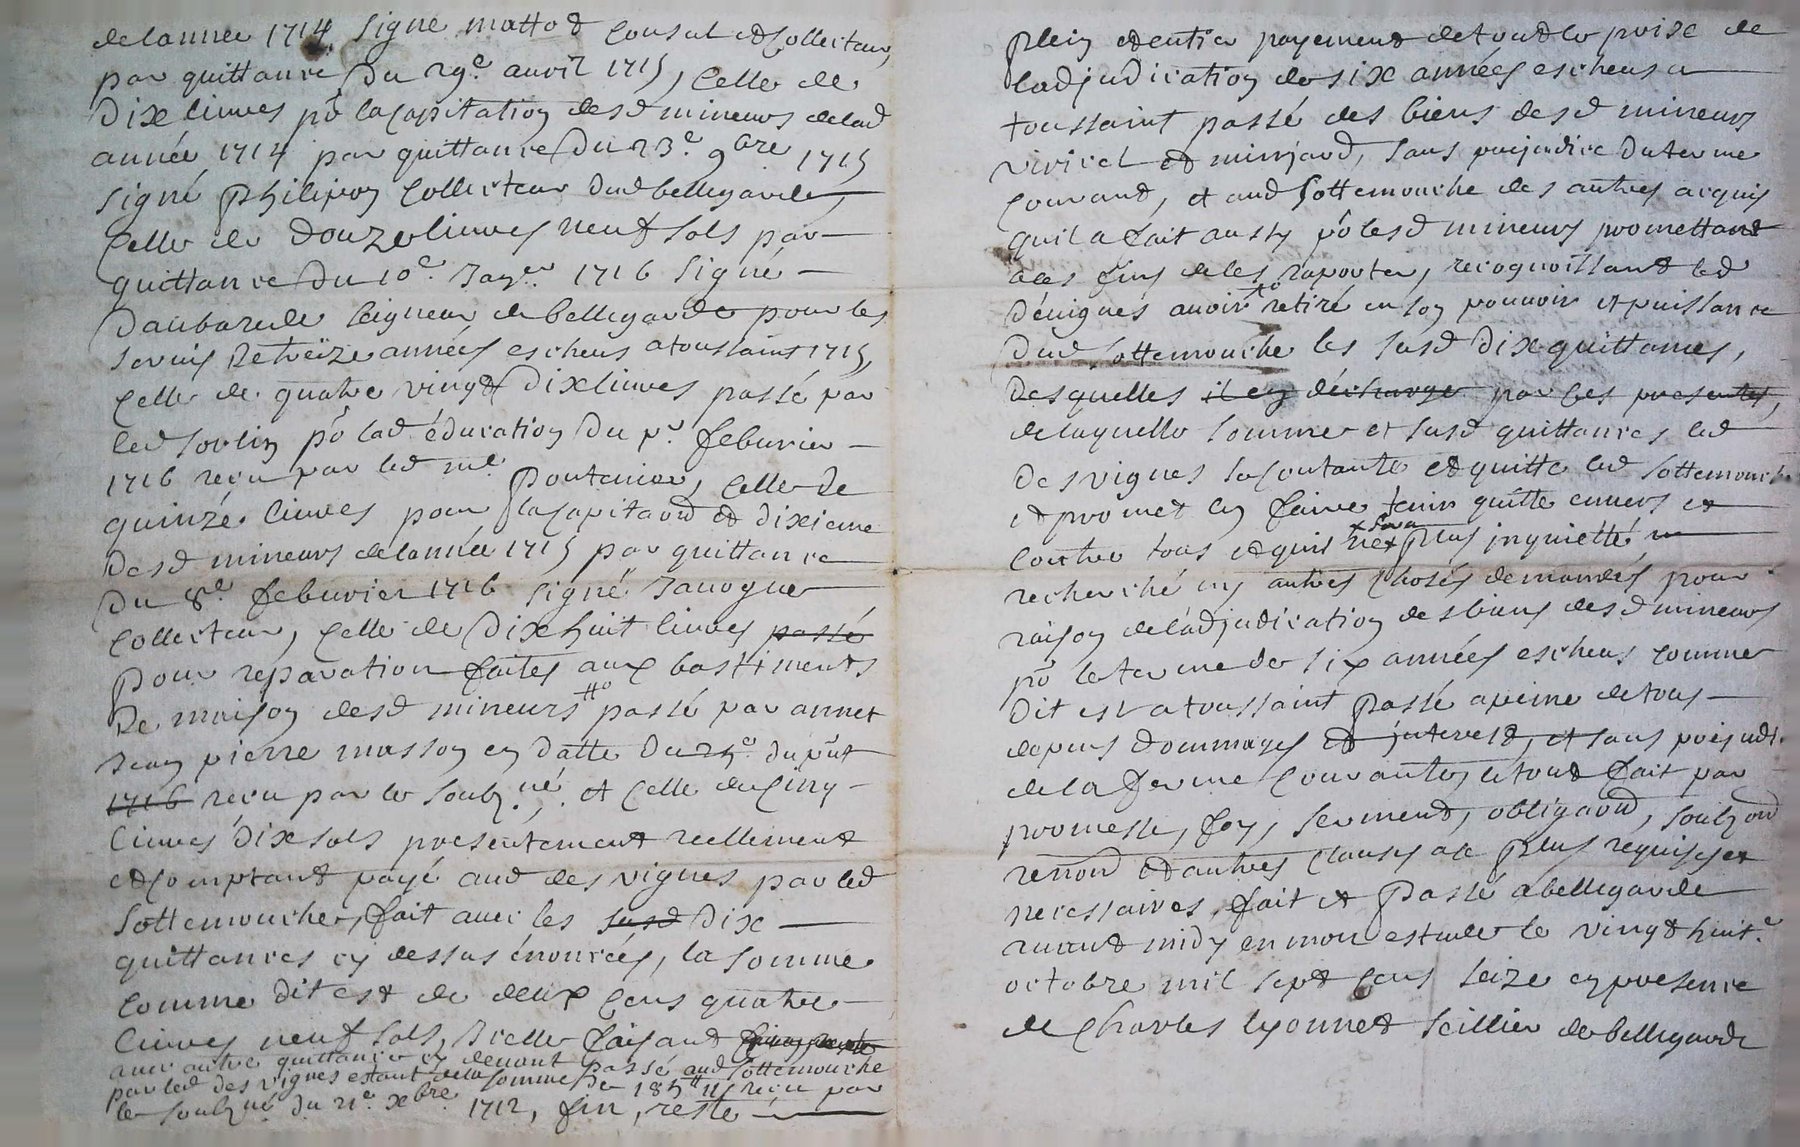 delannée 1714 signé mattod Consul et Collecteur,
par quittance du 29e auril 1715, Celle de
Dix liures pr la Capitation desd mineurs delad
année 1714 par quittance du 23e 9bre 1715
signé philipon Collecteur dud bellegarde,
Celle de douze liures neuf sols par
quittance du 10e Janer 1716 signé
Daubarede seigneur de bellegarde pour les
seruis de treize années escheus atoussaint 1715,
Celle de quatre vingt dix liures passé par
led sorlin pr lad éducation du pr feburier
1716 receu par led me pontanier, Celle de
quinze liures pour la Capitaon et dixieme
desd mineurs delannée 1715 par quittance
du 8e feburier 1716 signé Jauogne
Collecteur, Celle de dixhuit liures passé
pour reparation faites aux bastiments
de maison desd mineurs passé par annet
Jean pierre masson en datte du 25e du pnt
1716 receu par le soubz né, et Celle de Cinq
liures dix sols presentement reellement
et Comptant payé aud des vignes par led
Sottemouche, fait auec les susd dix
quittances cy dessus énoncées, la somme
Comme dit est de deux Cens quatre
liures neuf sols, Icelle faisant
auec autre quittance cy deuant passé aud sottemouche
par led des vignes estant de la somme de 185 receu par
le soubz né du 21e xbre 1712, fin, reste
plein et entier payement detoutle prix de
ladjudication de six années escheus a
toussaint passé des biens desd mineurs
viricel et minjard, sans prejudice du terme
Courant, et aud Sottemouche des autres acquis
quil a fait aussy pr lesd mineurs promettant
a les fins deles raporter, recognoissant led
Dévignes auoir retiré en son pouuoir et puissance
dud sottemouche les susd dix quittances,
desquelles il en décharge par ces presentes,
delaquelle somme et susd quittances led
Desvignes se Contante et quitte led sottemouche
et promet en faire tenir quitte enuers et
Contre tous et quis sera plus inquietté ny
recherché ny autres choses demandés pour
raison deladjudication des biens desd mineurs
pr le terme de six années escheus Comme
dit est a toussaint passé a peine de tous
depens dommages et interest, et sans prejudi.
de la ferme Courante, letout fait par
promesse, foy, serment, obligaon, soubzon
renon et autres Clauses ale plus requises et
necessaires, fait et passé a bellegarde
auant midy en mon estude le vingt huit.e
octobre mil sept Cens seize en presence
de Charles lyonnet seillier de bellegarde